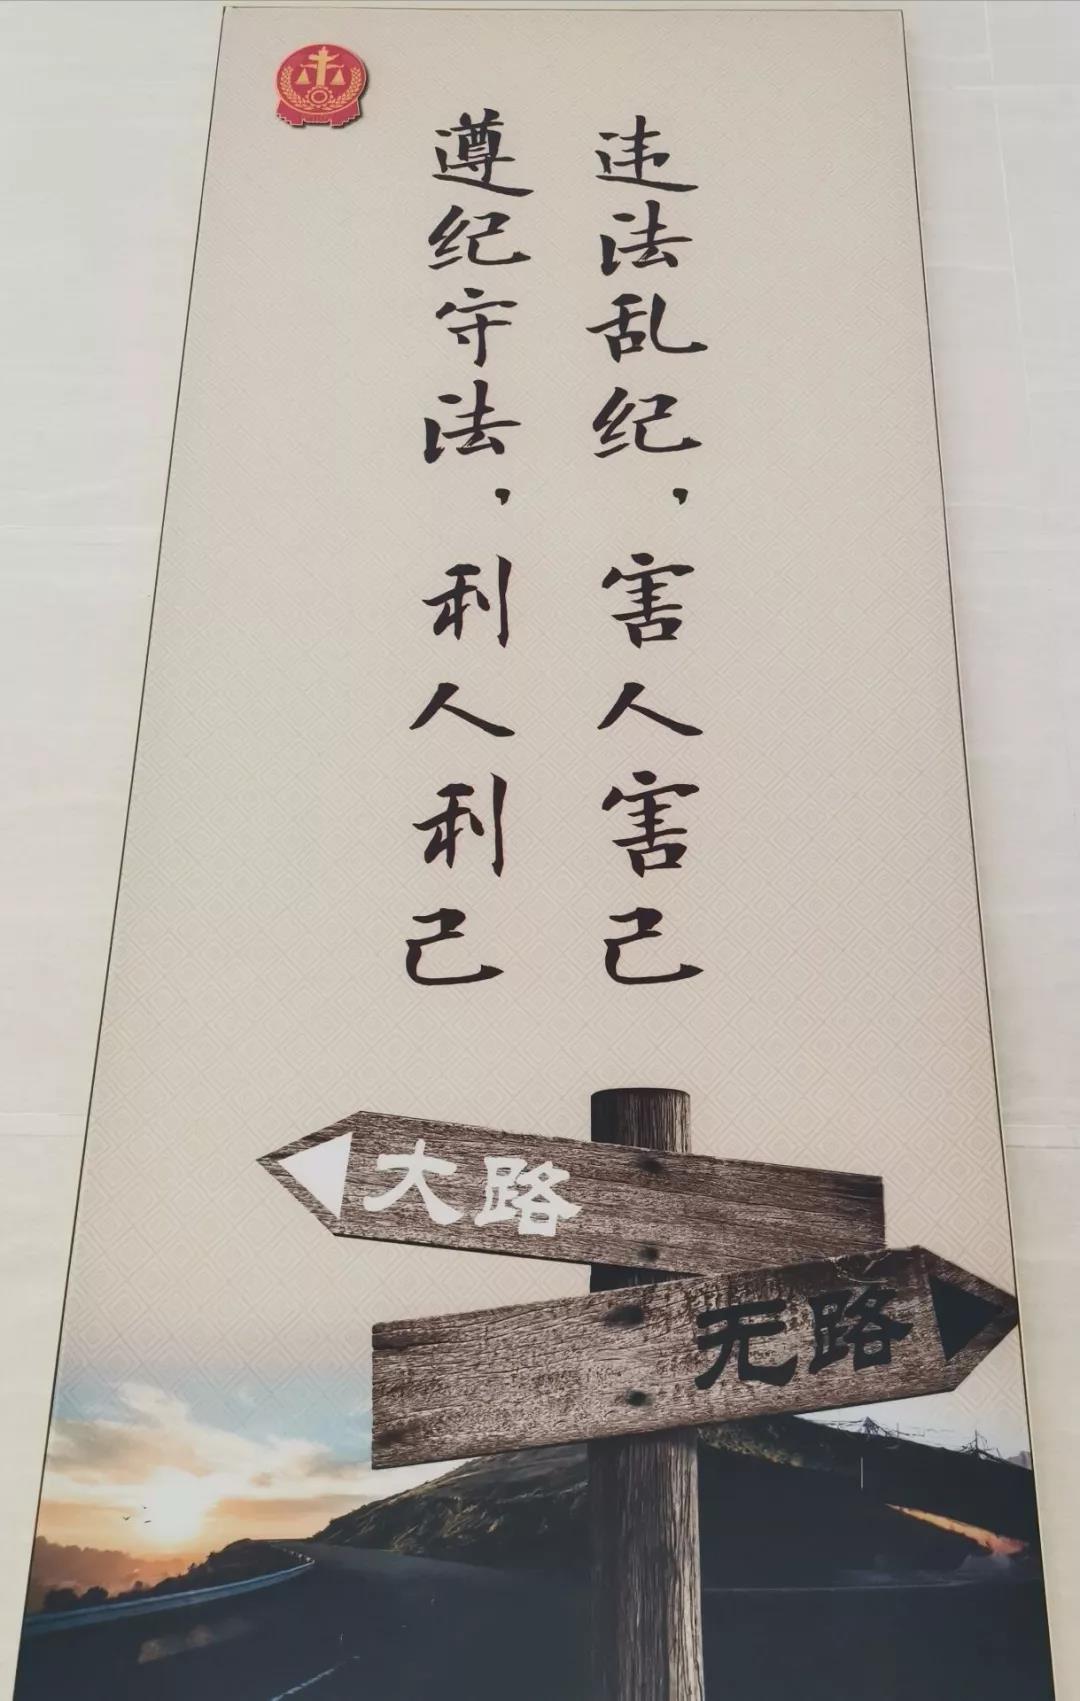 违法乱纪，害人害己
遵纪守法，利人利己
大路
无路